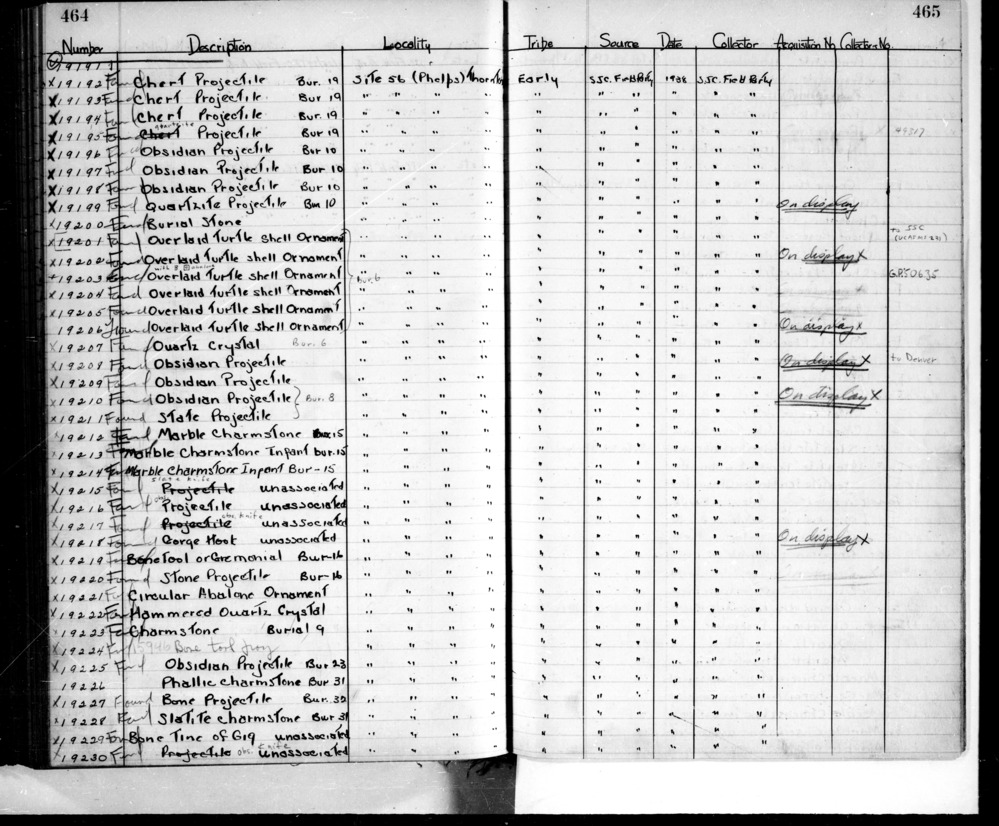 464
465
Number Description Locality Tribe Source Date Collector Acquisition No Collectors No.
19191
X19192 Found Chert Projectile Bur. 19 Site 56 (Phelps) Early S.S.C. Field Party 1938 S.S.C. Field Party
X19193 Found Chert Projectile Bur 19 " " " " " " " " "
X19194 Found Chert Projectile Bur. 19 " " " " " " " " "
X19195 Found Chert Projectile Bur 19 " " " " " " " " "
X19196 Found Obsidian Projectile Bur 10 " " " " " " " " "
X19197 Found Obsidian Projectile Bur 10 " " " " " " " " "
X19198 Found Obsidian Projectile Bur 10 " " " " " " " " "
X19199 Found Quartzite Projectile Bur 10 " " " " " " " " " On display
X19200 Found Burial Stone " " " " " " " " "
X19201 Found Overlaid Turtle Shell Ornament " " " " " " " " " to SSC
X19202 Found Overlaid Turtle shell Ornament " " " " " " " " " On display X
19203 Found Overlaid Turtle shell Ornament Bur. 6 " " " " " " " " "
X19204 Found Overlaid Turtle shell Ornament " " " " " " " " "
X19205 Found Overlaid Turtle shell Ornament " " " " " " " " "
19206 found Overlaid Turtle shell Ornament " " " " " " " " " On display X
X19207 Found Quartz Crystal Bur. 6 " " " " " " " " "
X19208 Found Obsidian Projectile " " " " " " " " " On display X to Denver
X19209 Found Obsidian Projectile " " " " " " " " "
X19210 Found Obsidian Projectile Bur. 8 " " " " " " " " " On display X
X19211 Found State Projectile " " " " " " " " "
X19212 Found Marble Charmstone Bur. 15 " " " " " " " " "
X19213 Found Marble Charmstone Infant bur. 15 " " " " " " " " "
X19214 Found Marble Charmstone Infant Bur-15 " " " " " " " " "
slate knife
X19215 Found Projectile unassociated " " " " " " " " "
X19216 Found Projectile unassociated " " " " " " " " "
obs. knife
X19217 Found Projectile unassociated " " " " " " " " "
X19218 Found Gorge Hook unassociated " " " " " " " " " On display X
X19219 Found Bone Tool or Ceremonial Bur-16 " " " " " " " " "
X19220 Found Stone Projectile Bur-16 " " " " " " " " "
X19221 Found Circular Abalone Ornament " " " " " " " " "
X19222 Found Hammered Quartz Crystal " " " " " " " " "
X19223 Found Charmstone Burial 9 " " " " " " " " "
X19224 Bone tool " " " " " " " " "
X19225 Found Obsidian Projectile Bur 23 " " " " " " " " "
19226 Phallic charmstone Bur 31 " " " " " " " " "
X19227 Found Bone Projectile Bur. 32 " " " " " " " " "
X19228 Found Slatite charmstone Bur 31 " " " " " " " " "
X19229 Found Bone Tine of Gig unassociated " " " " " " " " "
X19230 Found Projectile obs. knife unassociated " " " " " " " " "